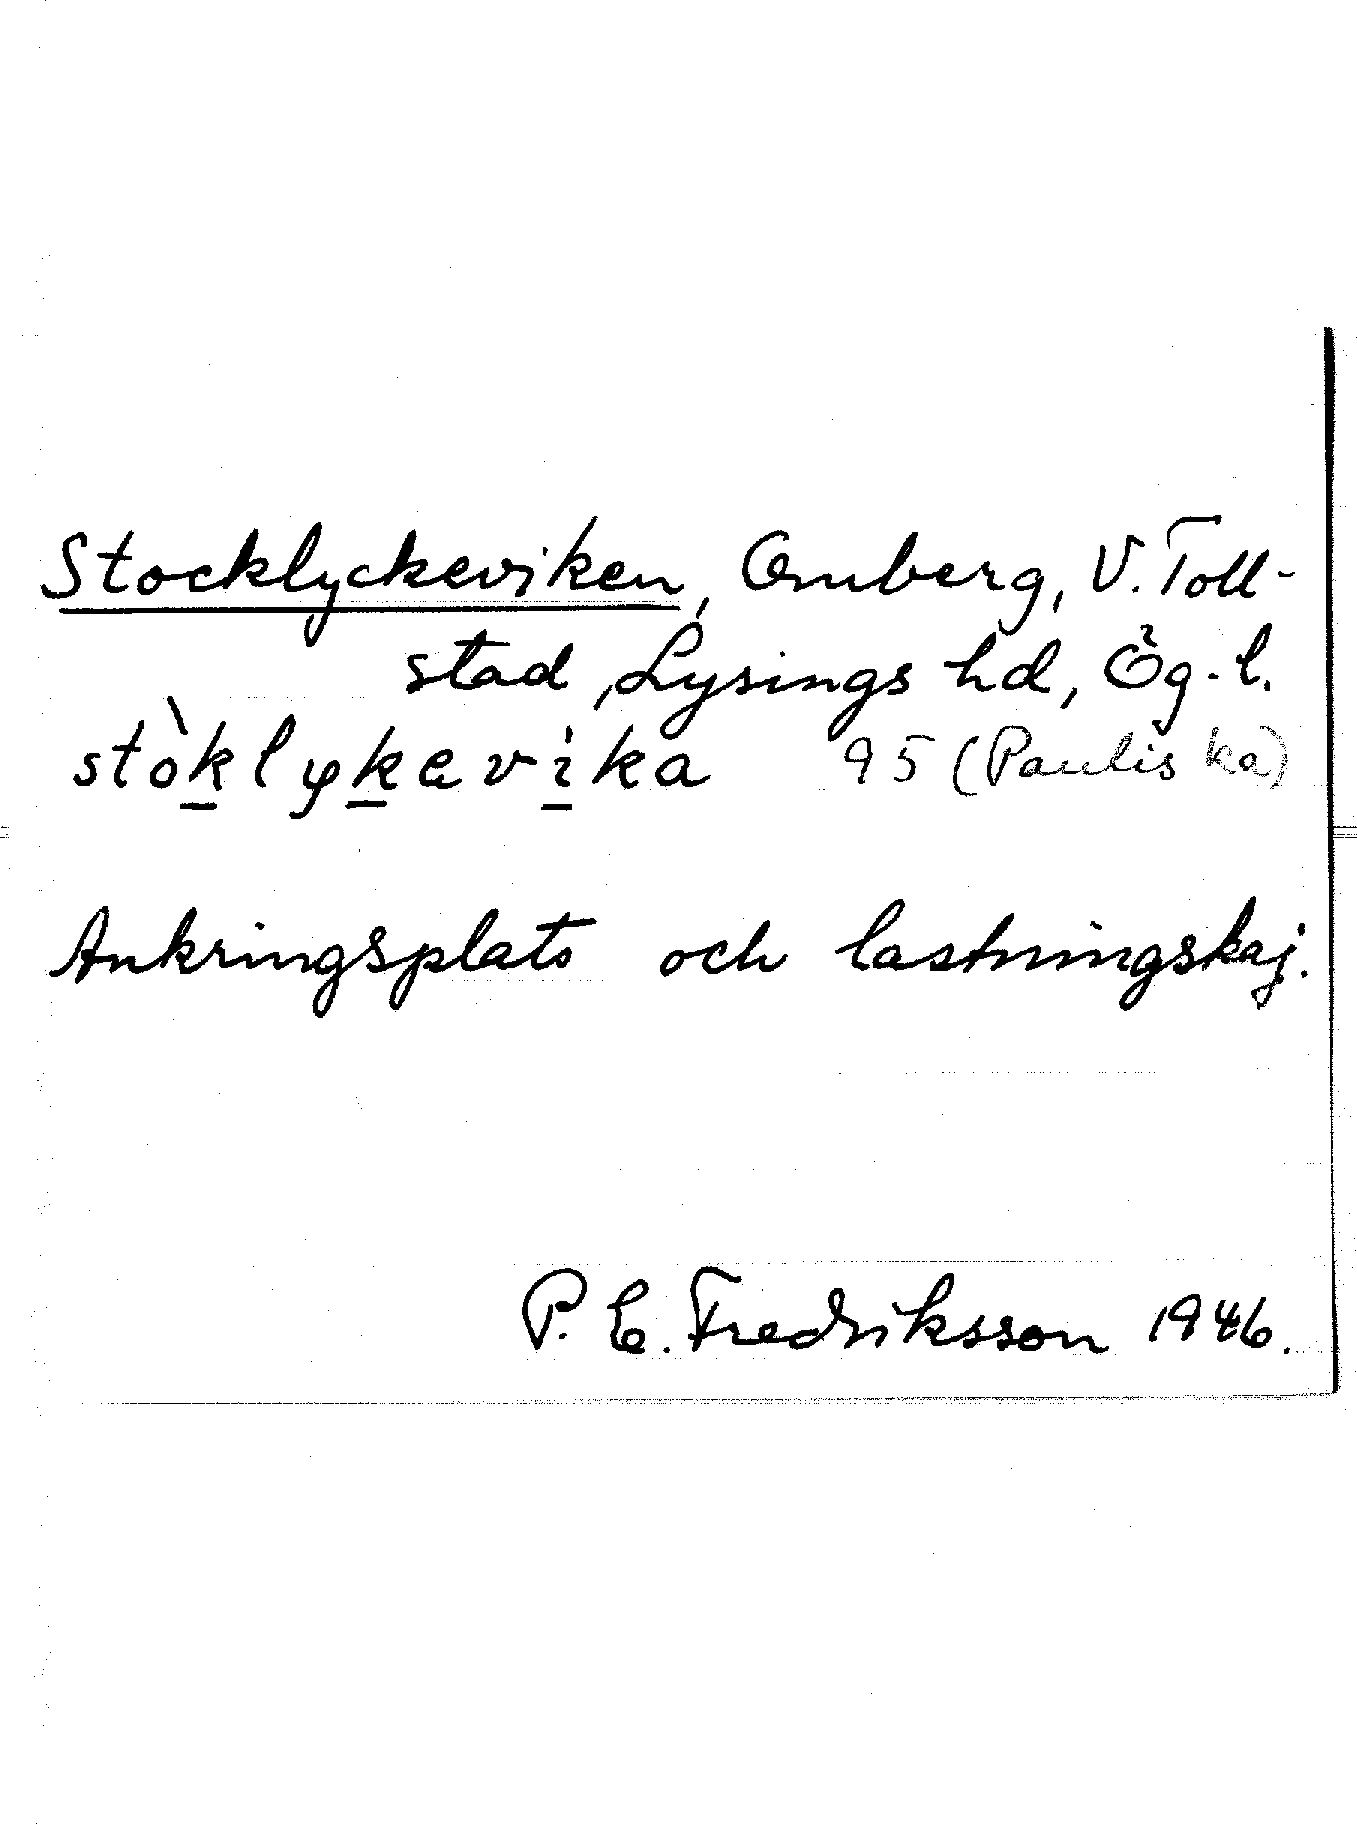 Stocklyckeviken, Omberg, V. Toll-
stad, Lysings hd, Ög. l.
stòklykevika 95 (Pauliska)
Ankringsplats och lastningskaj.
P. E. Fredriksson 1946.